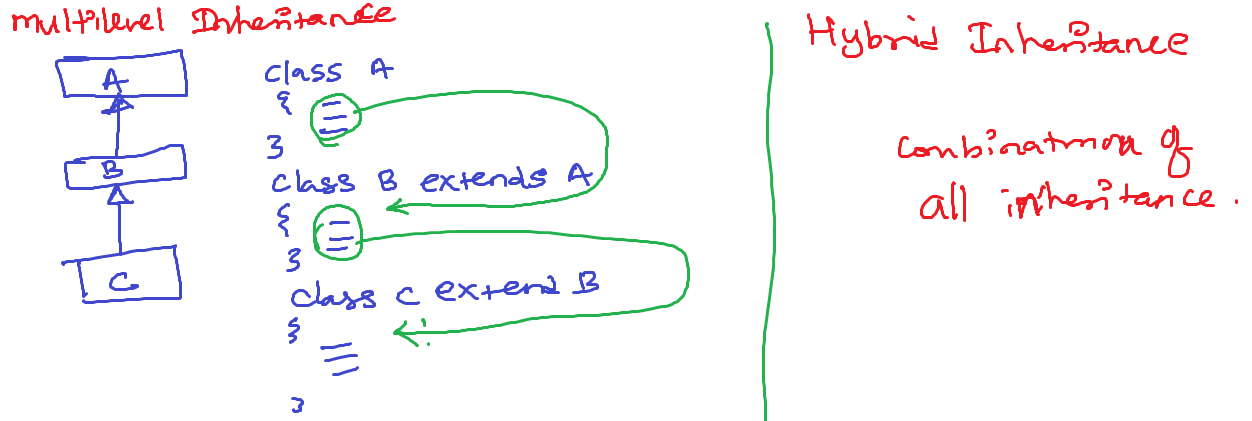 Multilevel Inheritance
A
B
C
class A
{
}
class B extends A
{
}
class C extend B
{
}
Hybrid Inheritance
Combination of
all inheritance.